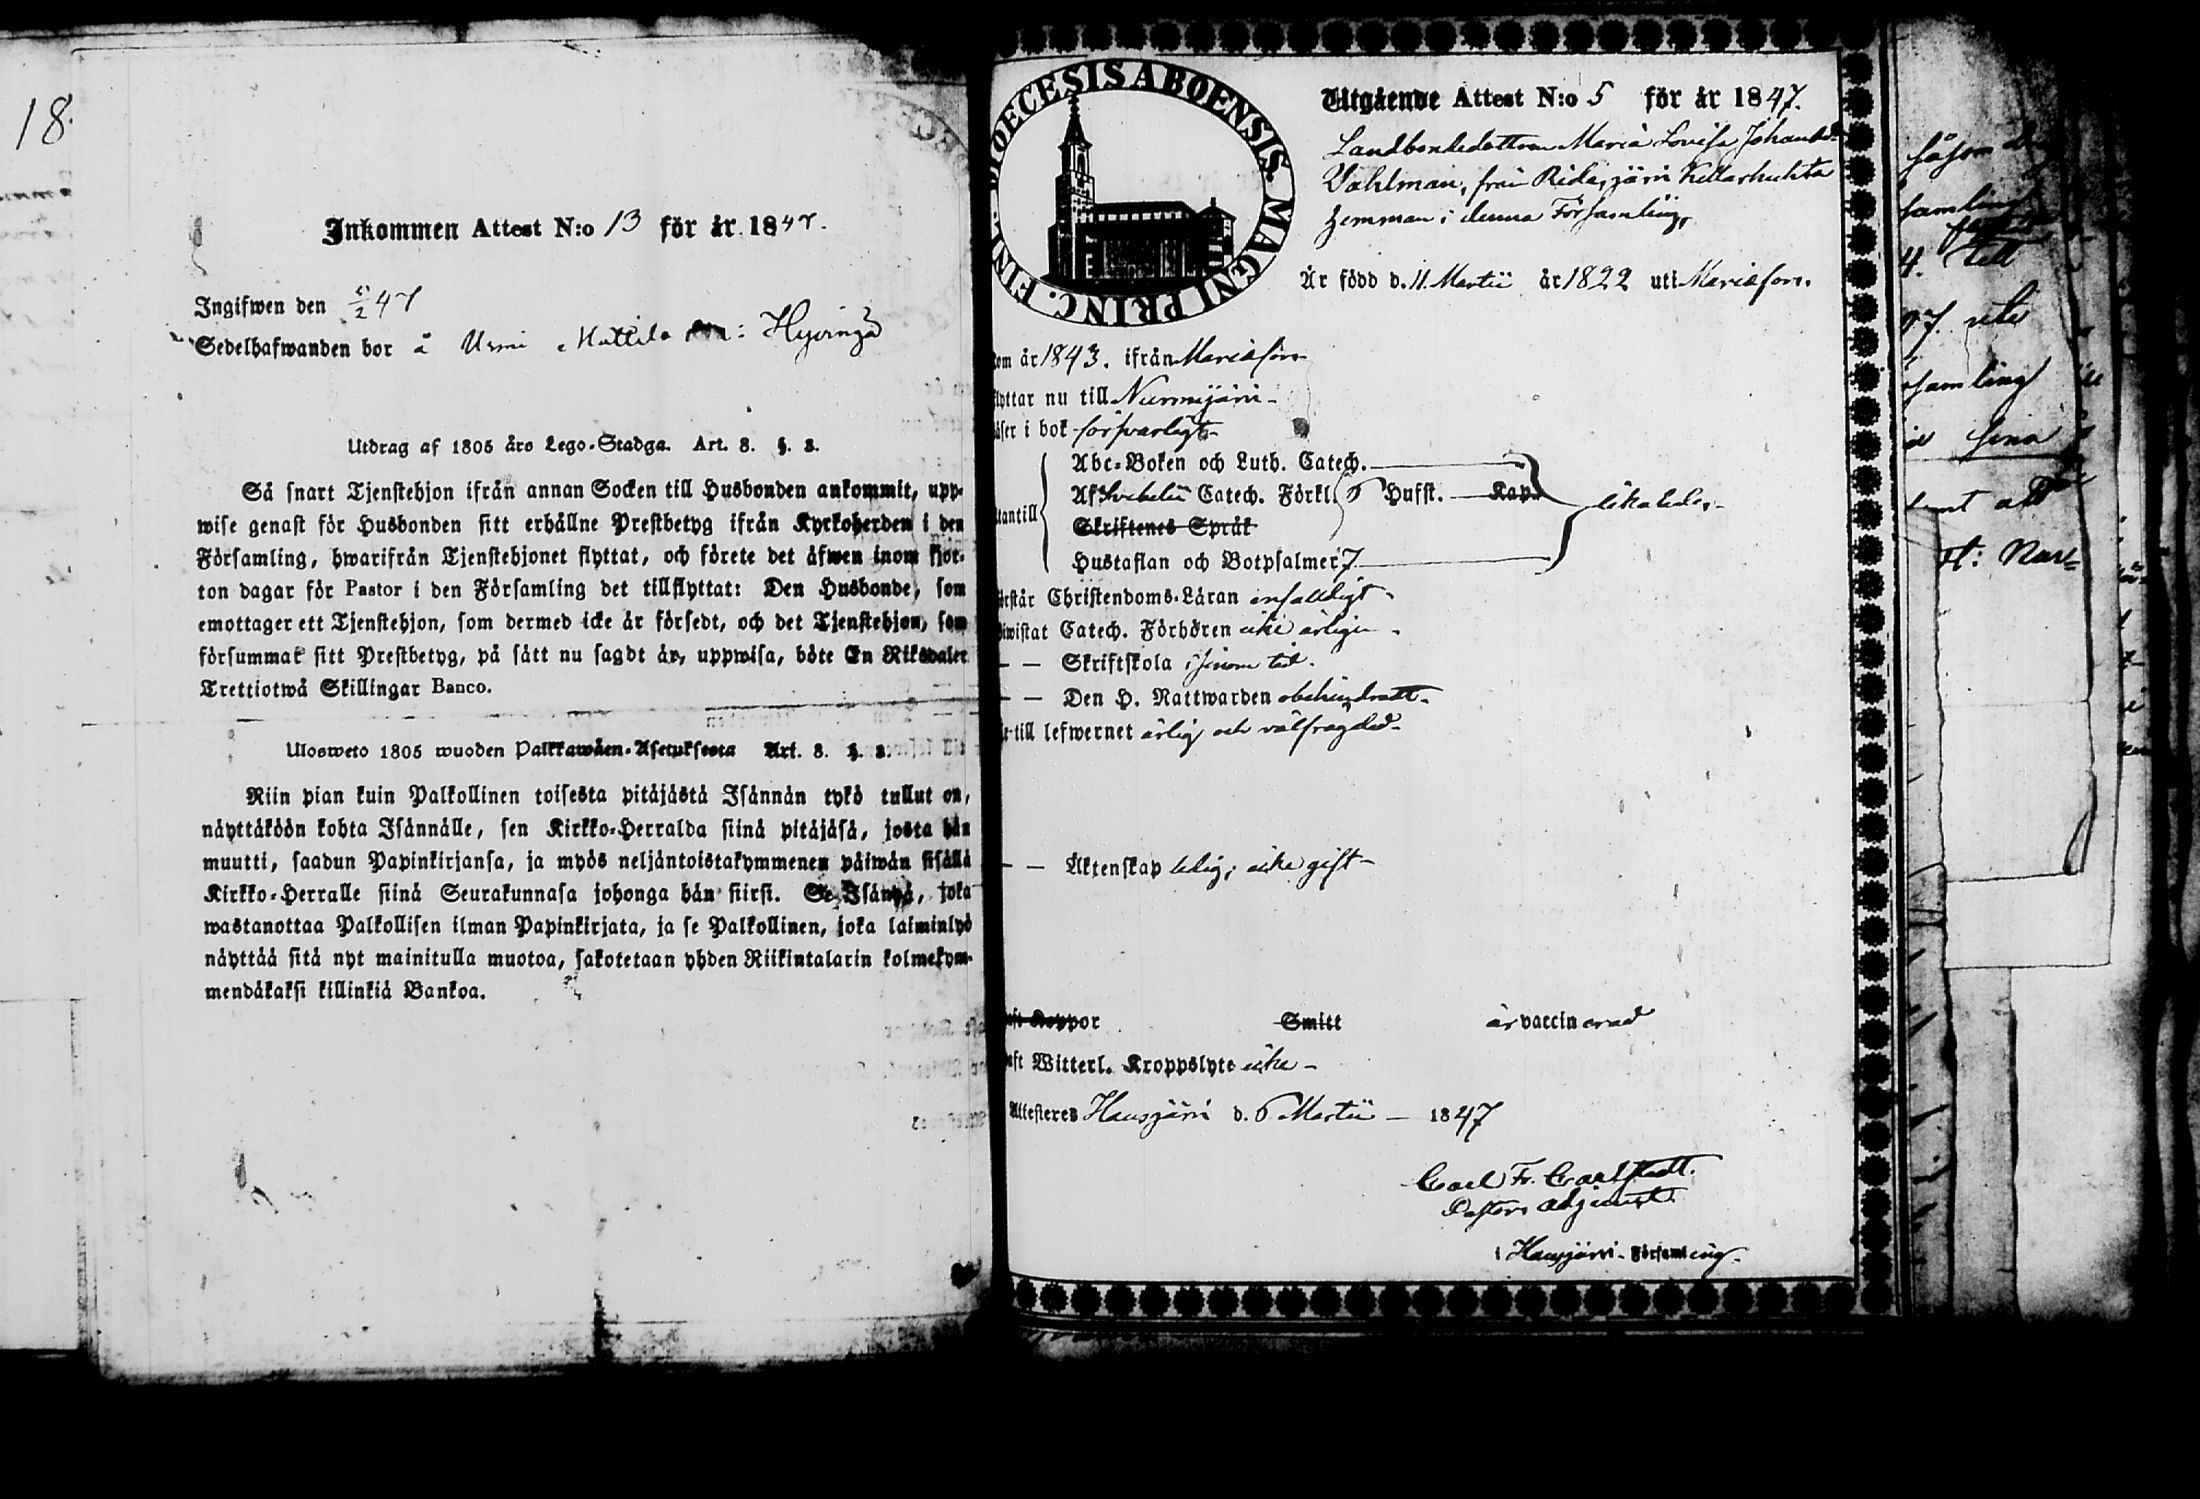 18.
Inkommen Attest N:o 13 för år 1847.
Ingifwen den 47
Sedelhafwanden bor å Hyvingä
Utdrag af 1805 års Lego-Stadga. Art. 8. §. 3.
Så snart Tjenstehjon ifrån annan Socken till Husbonden ankommit, upp-
wise genast för Husbonden sitt erhållne Prestbetyg ifrån Kyrkoherden i den
Församling, hwarifrån Tjenstehjonet flyttat, och förete det äfwen inom fjor-
ton dagar för Pastor i den Församling det tillflyttat: Den Husbonde, som
emottager ett Tjenstehjon, som dermed icke är försedt, och det Tjenstehjon, som
försummat sitt Prestbetyg, på sätt nu sagdt är, uppwisa, böte En Riksdaler
Trettiotwå Skillingar Banco.
Ulosweto 1805 wuoden Palkkawäen-Asetuksesta Art. 8. §. 3.
Niin pian kuin Palkollinen toisesta pitäjästä Isännän tykö tullut on,
näyttäköön kohta Isännälle, sen Kirkko-Herralda siinä pitäjäsä, josta hän
muutti, saadun Papinkirjansa, ja myös neljäntoistakymmenen päiwän sisällä
Kirkko-Herralle siinä Seurakunnasa johonga hän siirsi. Se Isäntä, joka
wastanottaa Palkollisen ilman Papinkirjata, ja se Palkollinen, joka laiminlyö
näyttää sitä nyt mainitulla muotoa, sakotetaan yhden Riikintalarin kolmekym-
mendäkaksi killinkiä Bankoa.
DIOECESIS ABOENSIS. MAGNI PRINC. FINL.
Utgående Attest N:o 5 för år 1847.
Landbondedottren Maria Lovisa Johansd.
Vahlman, från Ridasjärvi Kellarhuhta
hemman i denna Församling,
Är född d. 11 Martii år 1822 uti Mariæ förs.
kom år 1843. ifrån Mariæ förs.
flyttar nu till Nurmijärvi
läser i bok försvarligt
Abc-Boken och Luth. Catech.
Af Svebelii Catech. Förkl. 6 Hufst. Kap.
likaledes
utantill
Skriftenes Språk
Hustaflan och Botpsalmer 7
förstår Christendoms-Läran enfaldigt
bewistat Catech. Förhören icke årligen
— — Skriftskola i sinom tid.
— — Den H. Nattwarden obehindradt
är till lefwernet ärlig och välfrägdad
— — Äktenskap ledig; icke gift
haft Koppor Smitt är vaccinerad
haft Witterl. Kroppslyte icke
Attesteres Hausjärvi d. 6 Martii — 1847
Carl Fr. Carlstedt.
Pastors Adjunct
i Hausjärvi Församling.
såsom
samling
4. till
samling
sina